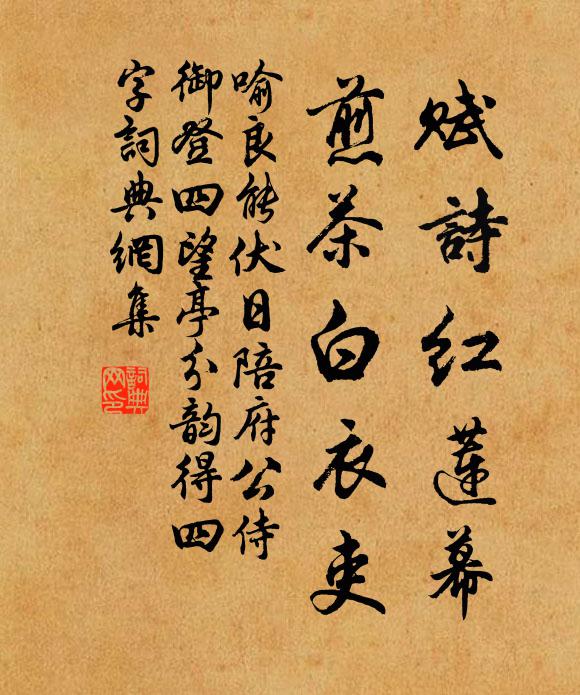 赋詩红蓮幕
煎茶白衣吏
喻良能伏日陪府公侍
御登四望亭分韵得四
字詞典網集
詞典网印